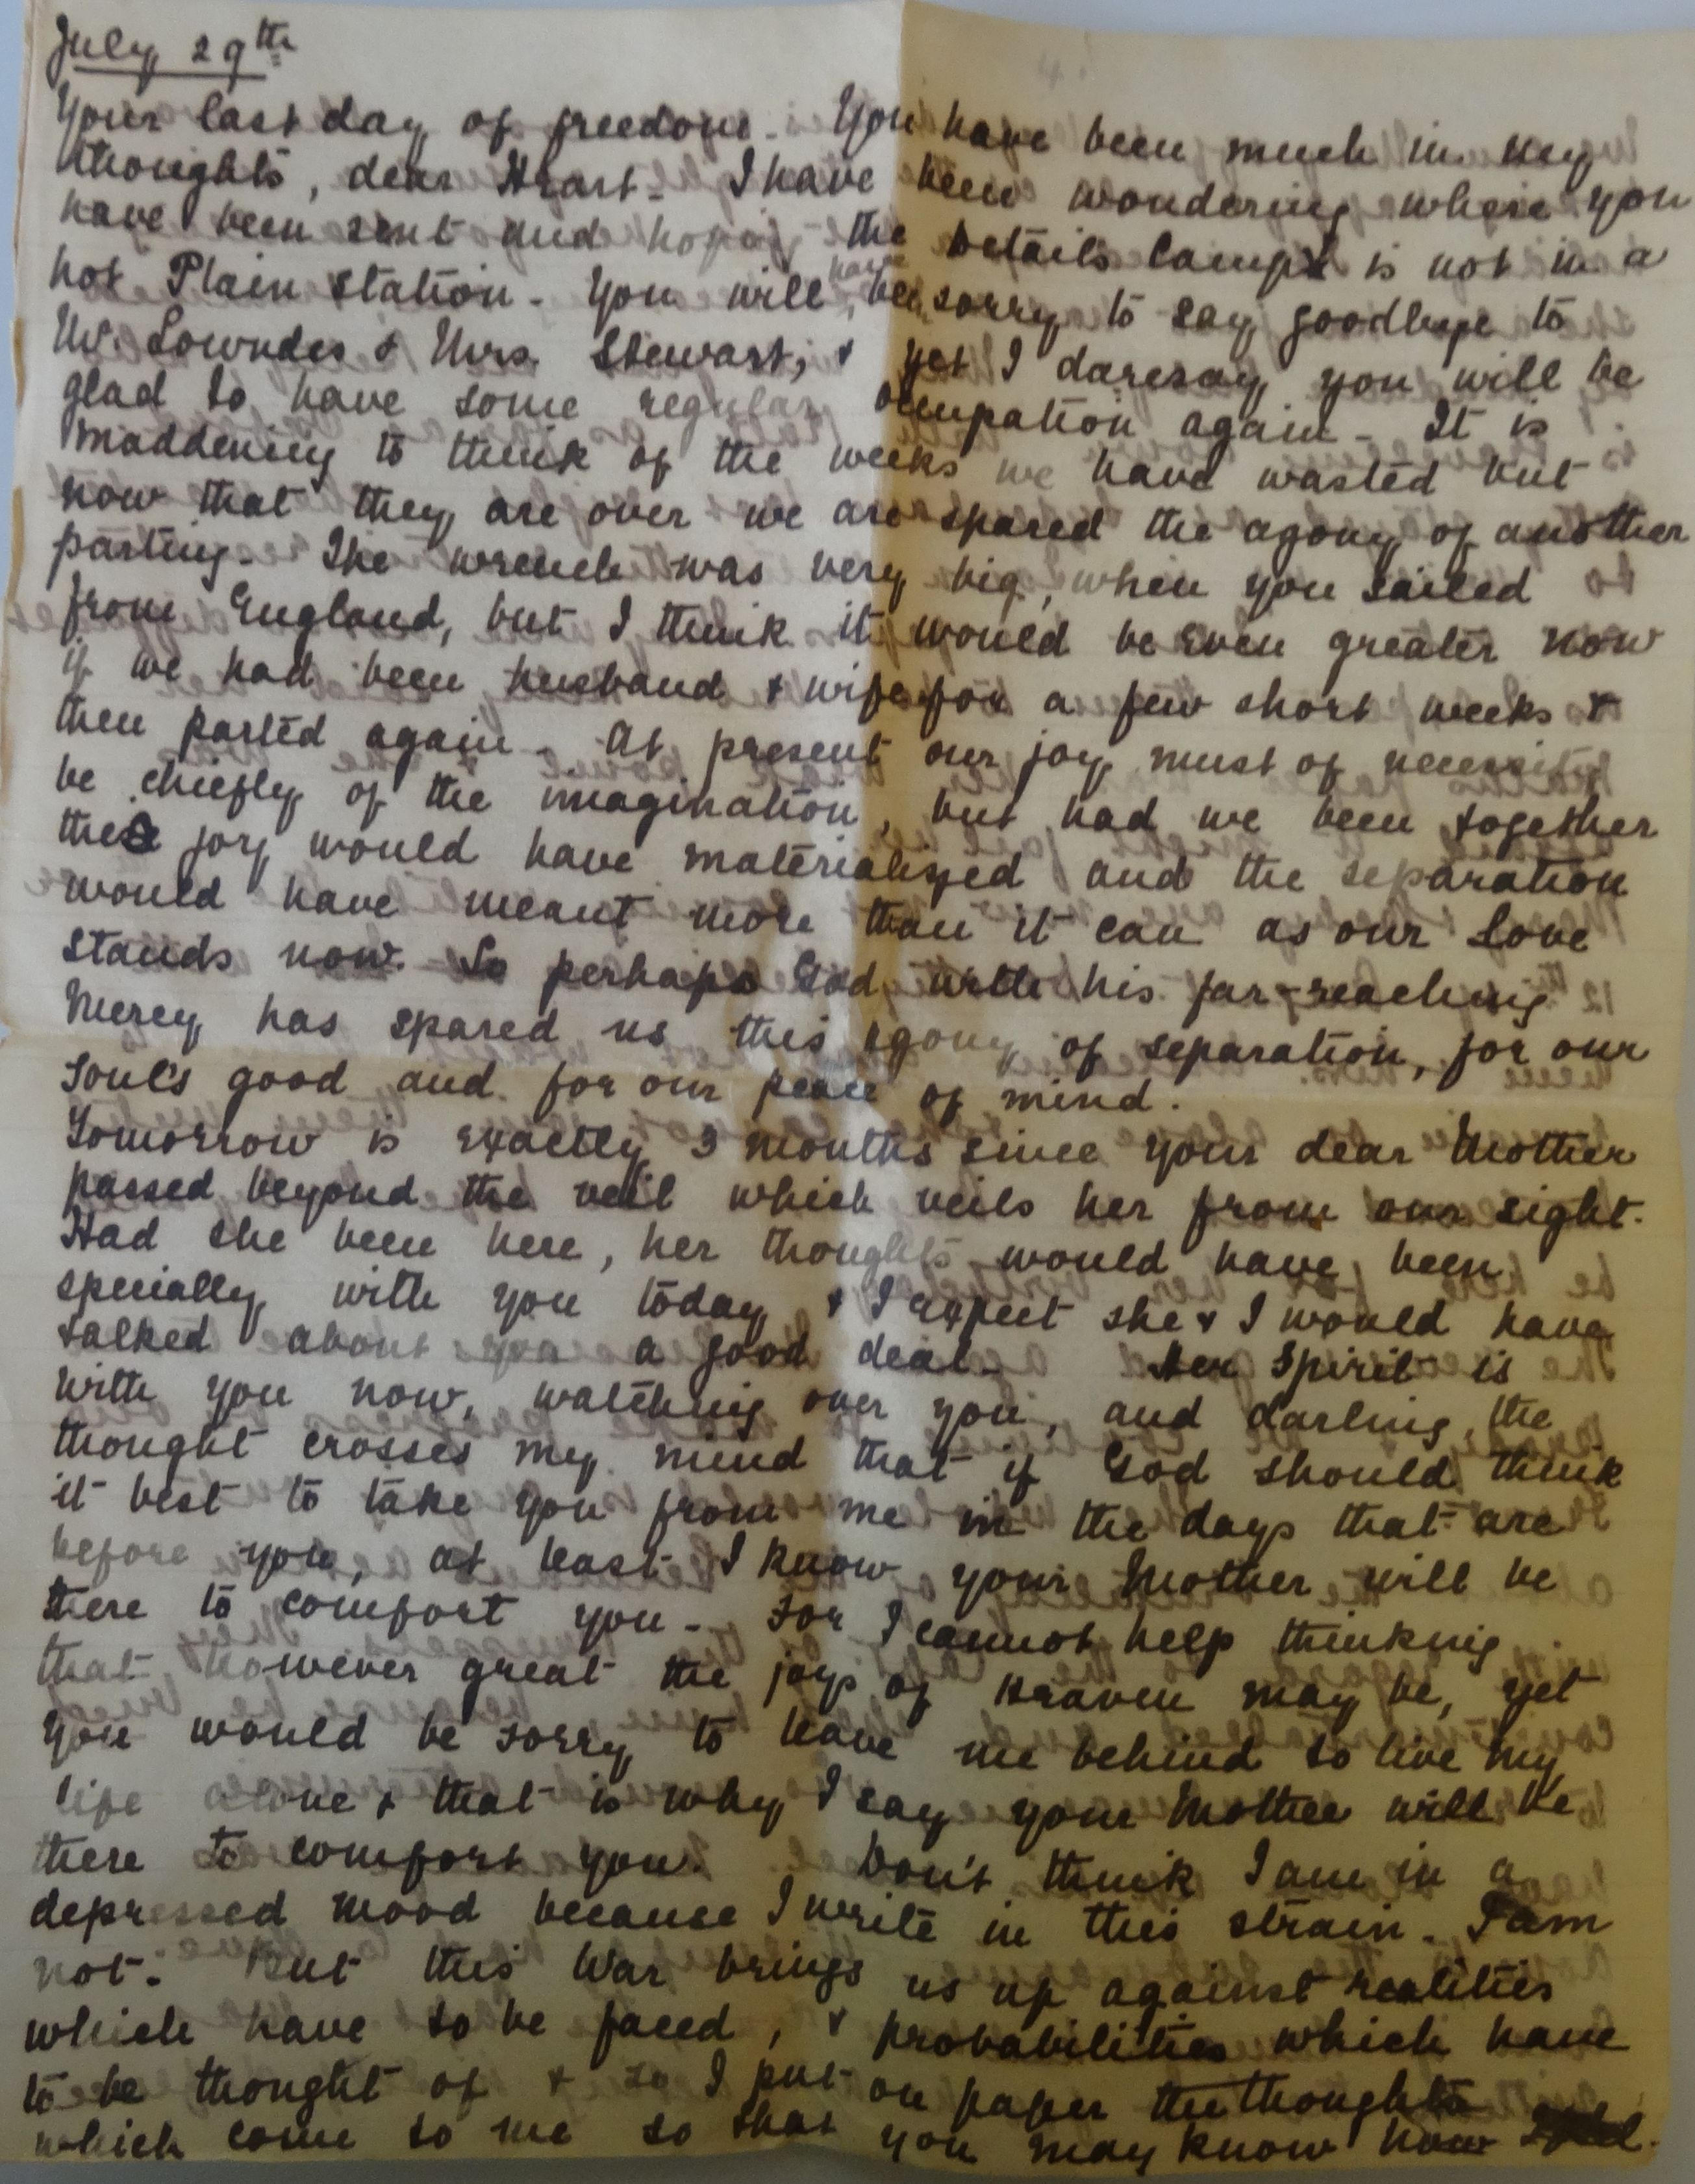 July 29th
4.
Your last day of freedom. You have been much in my
thoughts, dear Heart. I have been wondering where you
have been sent and hoping the Details Camp is not in a
hot Plain Station. You will have be sorry to say goodbye to
Mr. Lowndes & Mrs. Stewart, & yet I daresay you will be
glad to have some regular occupation again. It is
maddening to think of the weeks we have wasted but
now that they are over we are spared the agony of another
parting. The wrench was very big, when you sailed
from England, but I think it would be even greater now
if we had been husband & wife for a few short weeks &
then parted again. At present our joy must of necessity
be chiefly of the imagination, but had we been together
the joy would have materialized and the separation
would have meant more than it can as our Love
stands now. So perhaps God, with his far-reaching
Mercy has spared us this agony of separation, for our
soul's good and for our peace of mind.
Tomorrow is exactly 3 months since your dear Mother
passed beyond the veil which veils her from our sight.
Had she been here, her thoughts would have been
specially with you today & I expect she & I would have
talked about you a good deal. Her Spirit is
with you now, watching over you, and darling, the
thought crosses my mind that if God should think
it best to take you from me in the days that are
before you, at least I know your Mother will be
there to comfort you. For I cannot help thinking
that however great the joys of Heaven may be, yet
you would be sorry to leave me behind to live my
life alone & that is why I say your Mother will be
there to comfort you. Don't think I am in a
depressed mood because I write in this strain. I am
not. But this War brings us up against realities
which have to be faced, & probabilities which have
to be thought of & so I put on paper the thoughts
which come to me so that you may know how